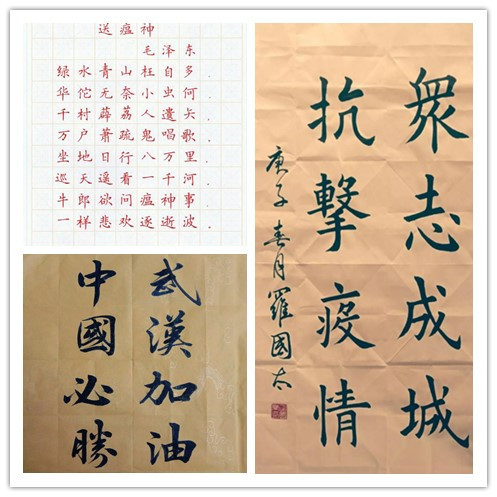 送瘟神
毛泽东
绿水青山枉自多.
华佗无奈小虫何
千村薜荔人遗矢.
万户萧疏鬼唱歌.
坐地日行八万里.
巡天遥看一千河.
牛郎欲问瘟神事.
一样悲欢逐逝波.
武漢加油
中國必勝
衆志成城
抗擊疫情
庚子春月羅國太